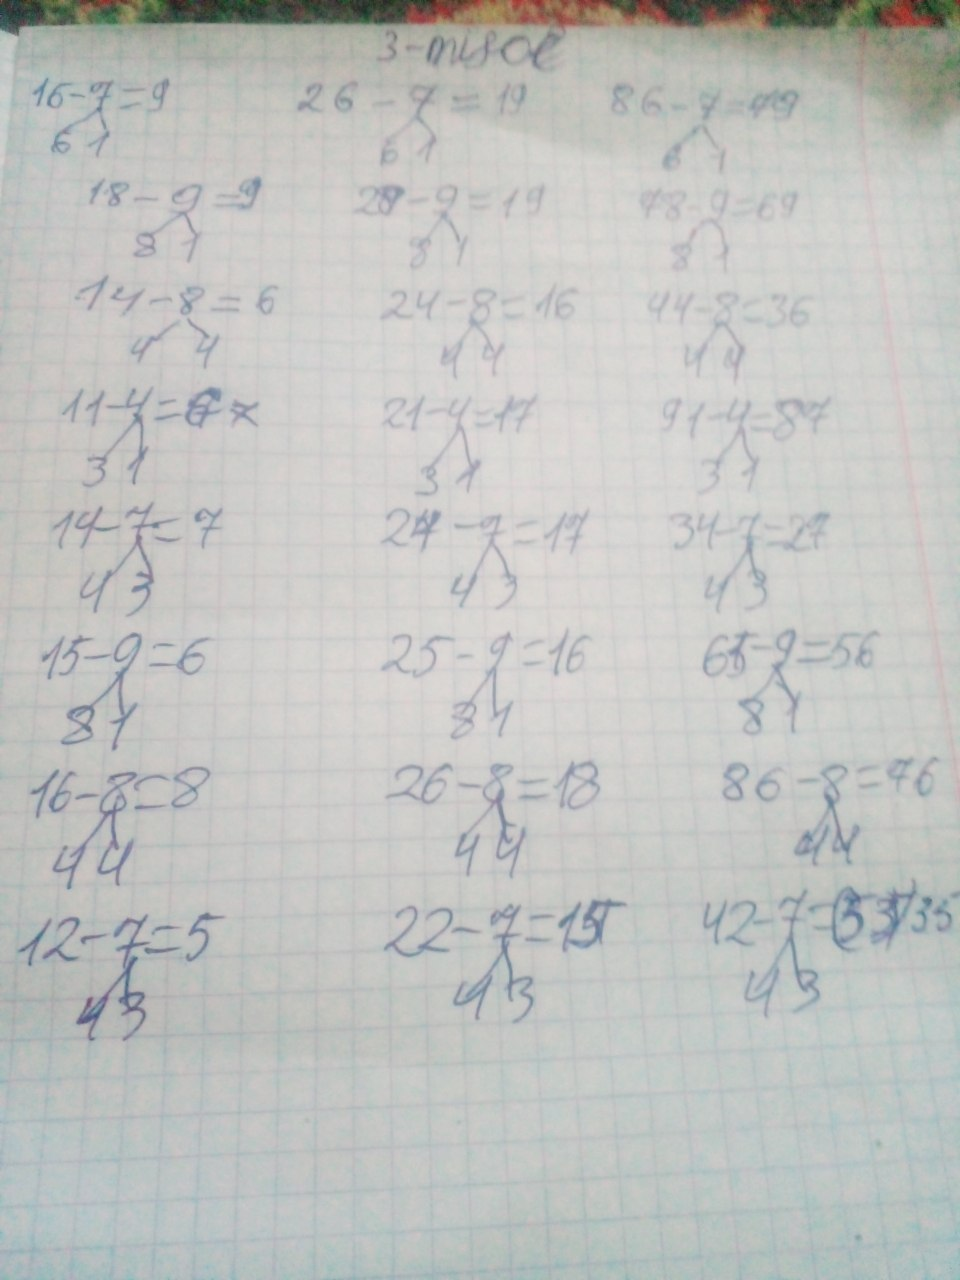 3-misol
16-7=9 26-7=19 86-7=79
6 1 6 1 6 1
18-9=9 28-9=19 78-9=69
8 1 8 1 8 1
14-8=6 24-8=16 44-8=36
4 4 4 4 4 4
11-4=7 21-4=17 91-4=87
3 1 3 1 3 1
14-7=7 24-7=17 34-7=27
4 3 4 3 4 3
15-9=6 25-9=16 65-9=56
8 1 8 1 8 1
16-8=8 26-8=18 86-8=76
4 4 4 4 4 4
12-7=5 22-7=15 42-7=35
4 3 4 3 4 3